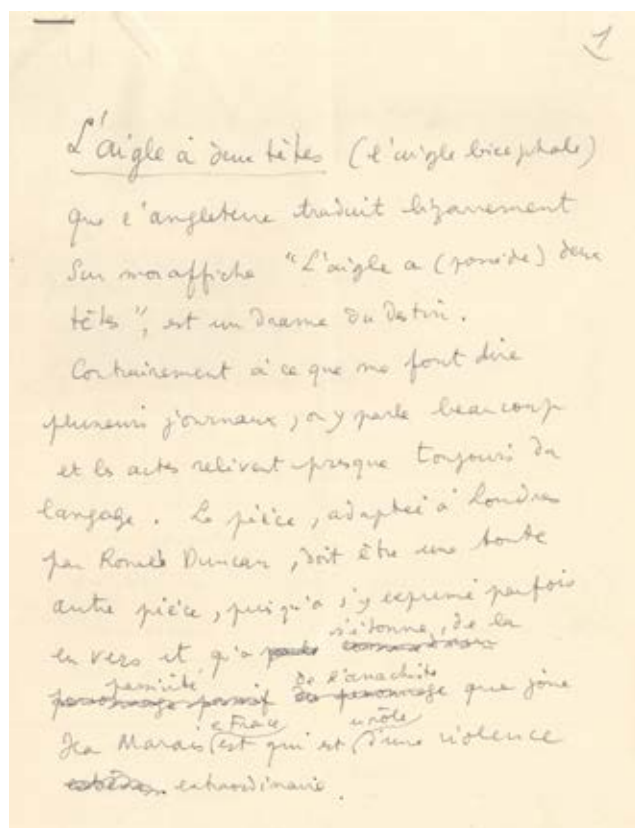 1
L'aigle à deux têtes (l'aigle bicéphale)
que l'angleterre traduit bizarrement
sur mon affiche "L'aigle a (possède) deux
têtes", est un drame du destin.
Contrairement à ce que me font dire
plusieurs journaux, on y parle beaucoup
et les actes relèvent presque toujours du
langage. La pièce, adaptée à Londres
par Ronald Duncan, doit être une toute
autre pièce, puisqu'on s'y exprime parfois
s'étonne, de la
en vers et qu'on parle
passivité de l'anarchiste
personnage passif du personnage que joue
en France un rôle
Jean Marais est qui est d'une violence
extraordinaire.